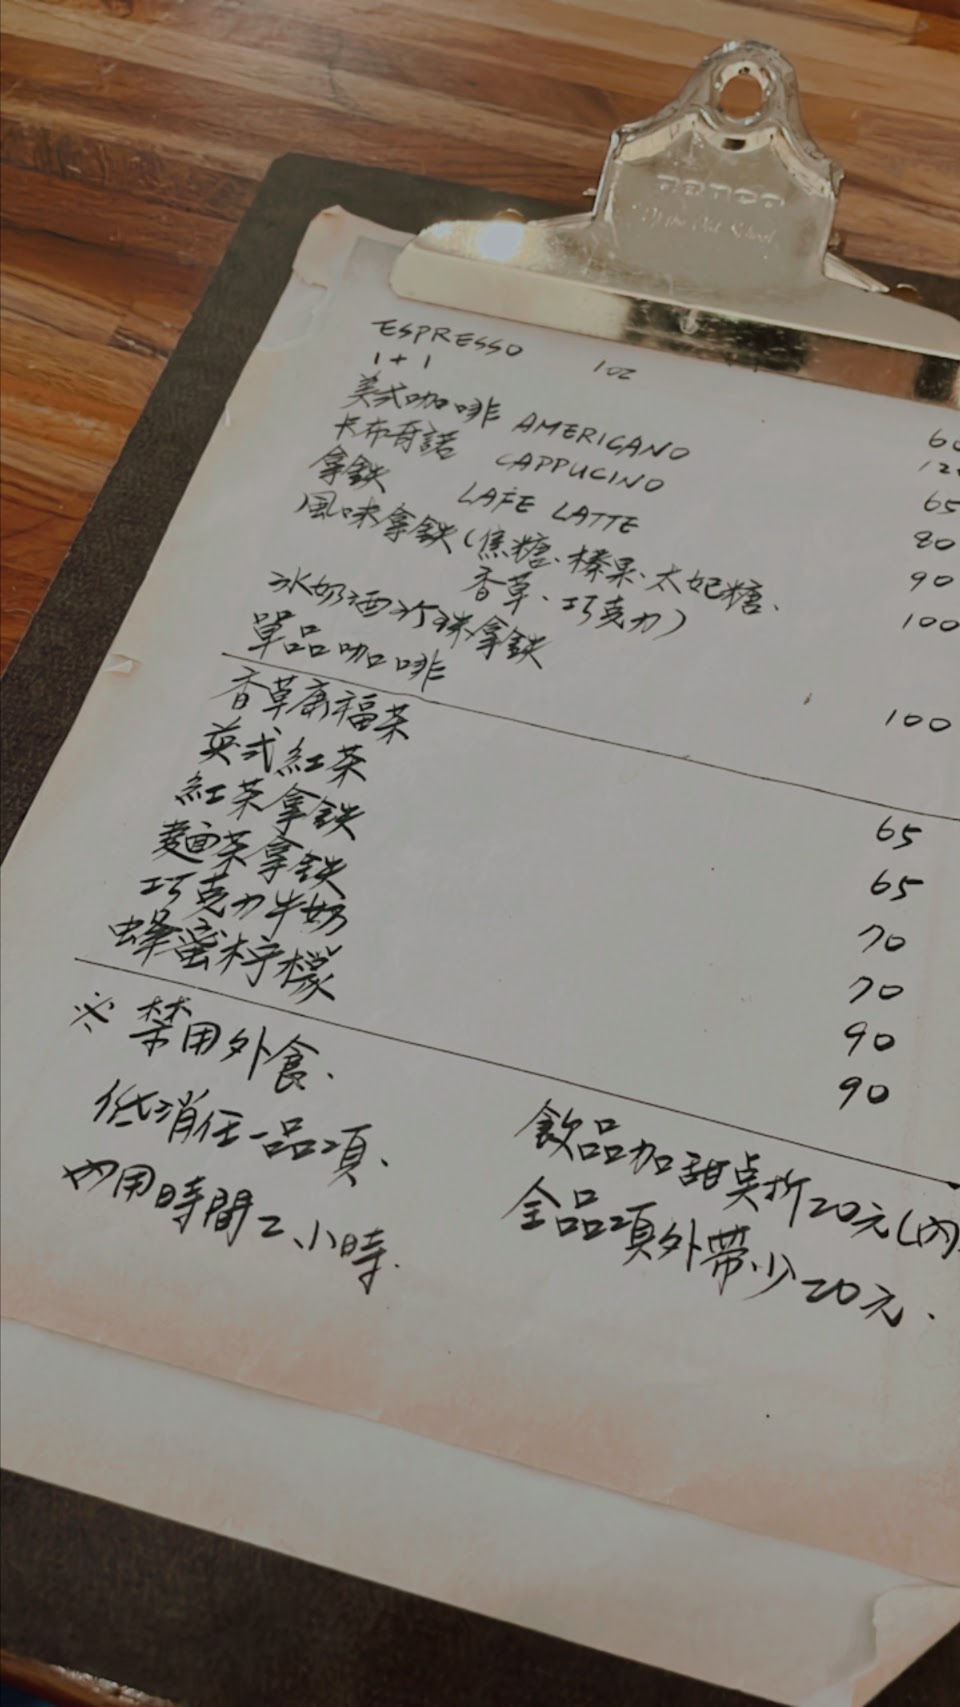 of the Old School
ESPRESSO 1oz 60
1+1
美式咖啡 AMERICANO 65
卡布奇諾 CAPPUCINO 80
拿鐵 CAFE LATTE 90
風味拿鐵(焦糖、榛果、太妃糖、 100
香草、巧克力)
冰奶酒冰珠拿鐵
單品咖啡 100
香草康福茶 65
英式紅茶 65
紅茶拿鐵 70
麵茶拿鐵 70
巧克力牛奶 90
蜂蜜檸檬 90
※禁用外食.
低消任一品項、
內用時間2小時.
飲品加甜點折20元(內
全品項外帶少20元.